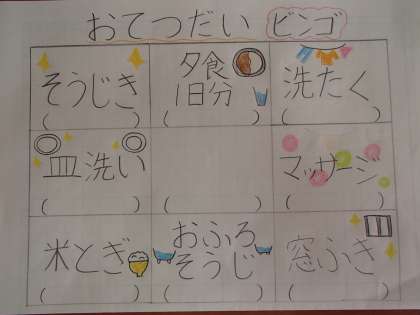 おてつだい ビンゴ
そうじき
(　)
夕食
1日分
(　)
洗たく
(　)
皿洗い
(　)
(　)
マッサージ
(　)
米とぎ
(　)
おふろ
そうじ
(　)
窓ふき
(　)